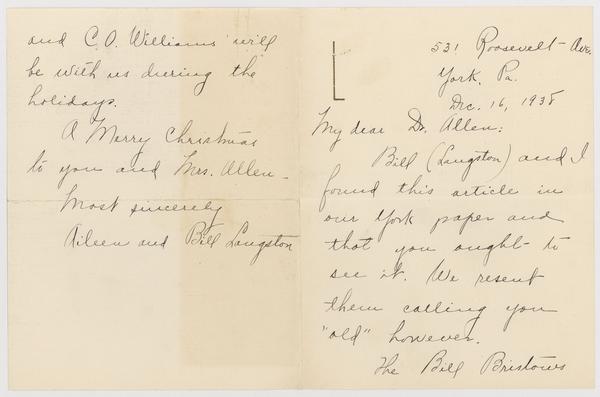 531 Roosevelt Ave.
York, Pa.
Dec. 16, 1938
My dear Dr. Allen:
Bill (Langston) and I
found this article in
our York paper and
that you ought to
see it. We resent
them calling you
"old" however.
The Bill Bristows
and C.O. Williams will
be with us during the
holidays.
A Merry Christmas
to you and Mrs. Allen -
Most sincerely
Aileen and Bill Langston